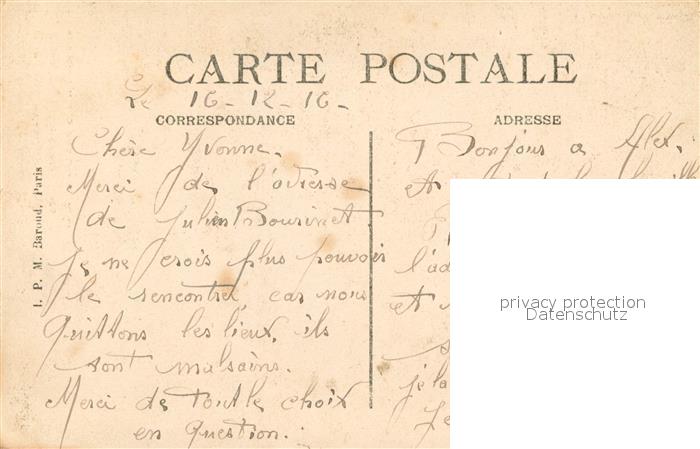 CARTE POSTALE
Le 16-12-16-
CORRESPONDANCE
Chère Yvonne.
Merci de l'adresse
de Julien Bourinet
je ne crois plus pouvoir
le rencontrer, car nous
quittons les lieux, ils
sont malsains.
Merci de tout le choix
en question.
ADRESSE
Bonjour a Alex.
et
l'ad
et
je la
Je
I. P. M. Baroud, Paris
privacy protection
Datenschutz